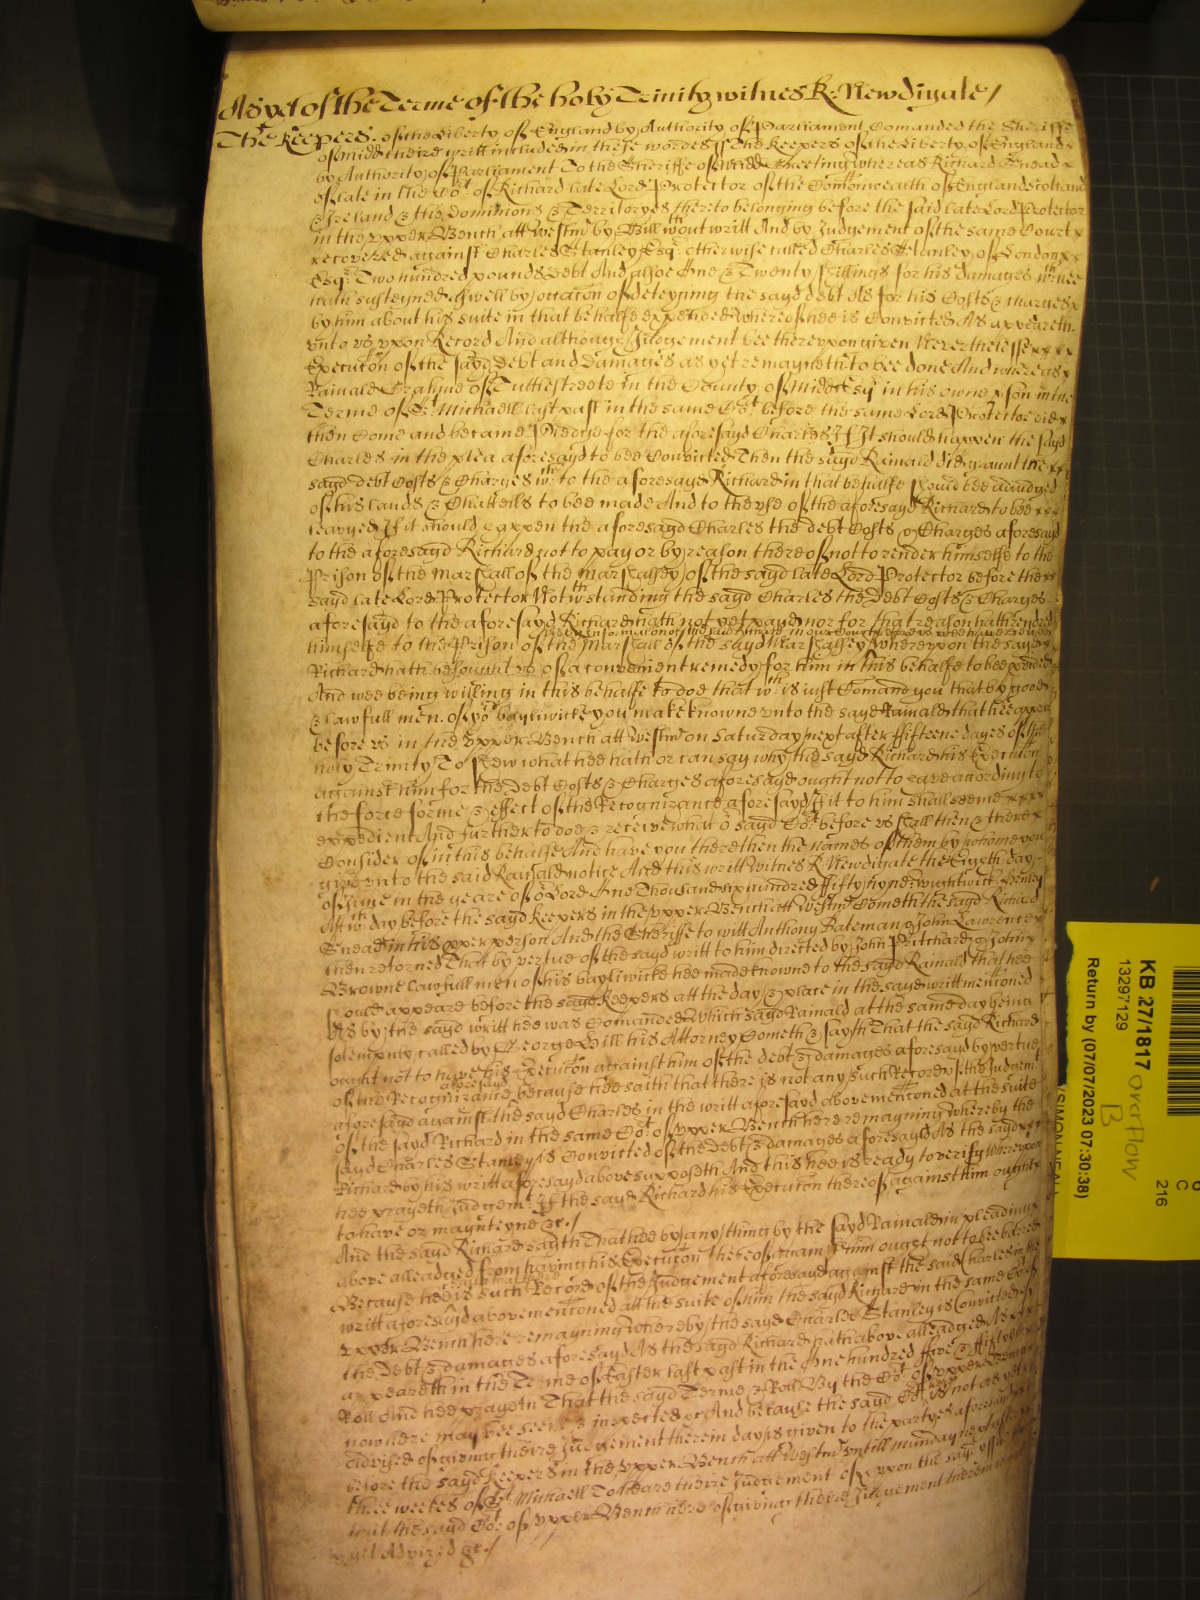 As yet of the Terme of the holy Trinity witnes R: Newdigate /
The keepers of the Liberty of England by Authority of Parliament Comanded the Sheriffe
of Midd theire writt included in these wordes ss The Keepers of the Liberty of England x
by Authority of Parliament To the Sheriffe of Midd Greeting whereas Richard Snead x
of late in the Cort of Richard late Lord Protector of the Comonwealth of England Scotland
& Ireland & the Dominions & Territoryes thereto belonging before the said late Lord Protector
in the upper Bench att Westmr by Bill wthout writt And by Judgement of the same Court x
recovered against Charles Stanley Esqr otherwise called Charles Stanley of London xx
Esqr Two hundred pounds Debt And alsoe One & Twenty shillings for his damages wch hee
hath susteyned aswell by occation of deteyning the sayd debt As for his Costs & charges x
by him about his suite in that behalfe expended whereof hee is Convicted As appeareth
unto us upon Record And although Judgement bee thereupon given Neverthelesse xxxx
Execution of the sayd Debt and Damages as yet remayneth to bee done And whereas x
Rainald Grahme of Tuttlestreete in the County of Midd Esqr in his owne pson in the
Terme of St Michaell last past in the same Cort before the same Lord Protector did x
then Come and became Pledge for the aforesayd Charles That If It should happen the sayd
Charles in the plea aforesayd to bee Convicted Then the sayd Rainald did graunt the xx
sayd debt Costs & Charges wch to the aforesayd Richard in that behalfe should bee adiudged
of his lands & Chattells to bee made And to the use of the aforesayd Richard to bee x
leavyed If it should happen the aforesayd Charles the debt Costs & Charges aforesayd
to the aforesayd Richard not to pay or by reason thereof not to render himselfe to the
Prison of the Marshall of the Marshallsey of the sayd late Lord Protector before the xx
sayd late Lord Protector Notwthstanding the sayd Charles the Debt Costs & Charges
aforesayd to the aforesayd Richard hath not yet payd nor for that reason hath rendred
himselfe to the Prison of the Marshall of the sayd Marshallsey whereupon the sayd
Richard hath besought us of a convenient remedy for him in this behalfe to bee pvided
And wee being willing in this behalfe to doe that wch is iust Comand you that by good
& lawfull men of yor bayliwicke you make knowne unto the sayd Rainald that hee appeare
before us in the upper Bench att Westmr on Saturday next after fifteene dayes of the
holy Trinity To shew what hee hath or can say why the sayd Richard his Execution
against him for the Debt Costs & Charges aforesayd ought not to have according to
the force forme & effect of the Recognizance aforesayd If it to him shall seeme xxxx
expedient And further to doe & receive what or sayd Cort before us shall then & there x
Consider of in this behalfe And have you there then the names of them by whome you
give unto the said Rainald notice And this writt Witnes R Newdigate the Eigth day
of June in the yeare of or Lord One Thousand six hundred fifty nyne Wightwick Henley
Att wch day before the sayd Keepers in the upper Bench att Westmr Cometh the sayd Richard
Snead in his pper person And the Sheriffe to witt Anthony Bateman & John Lawrence x
then retorned That by vertue of the sayd writt to him directed by John Pritchard & John x
Browne lawfull men of his bayliwicke hee made knowne to the sayd Rainald that hee
should appeare before the sayd Keepers att the day & place in the sayd writt mentioned
As by the sayd writt hee was Comanded Which sayd Rainald at the same day being
solemnly called by George Hill his Attorney Cometh & sayth That the sayd Richard
ought not to have his Execution against him of the debt & damages aforesayd by vertue
of the Recognizance aforesayd because hee saith that there is not any such Record of the Judgmt
aforesayd against the sayd Charles in the writt aforesayd above mentioned at the suite
of the sayd Richard in the same Cort of upper Bench here remayning whereby the
sayd Charles Stanley is Convicted of the Debt & damages aforesayd As the sayd xxx
Richard by his writt aforesayd above supposeth And this hee is ready to verify Whereupon
hee prayeth Judgemt If the sayd Richard his Execution thereof against him ought x
to have or maynteyne &c. /
And the sayd Richard sayth That hee by any thing by the sayd Rainald in pleading
above alleadged from having his Execution thereof against him ought not to bee barred
Because hee sayth there is such Record of the Judgement aforesayd against the said Charles in the
writt aforesayd above mentioned att the suite of him the sayd Richard in the same Cort of
upper Bench here remayning Whereby the sayd Charles Stanley is Convicted of
the Debt & damages aforesayd As the sayd Richard hath above alleadged As xxx
appeareth in the Terme of Easter last past in the One hundred five & fiftyeth
Roll And hee prayeth That the sayd Terme & Roll By the Cort of upper Bench
now here may bee seene & inspected &c And because the sayd Cort here is not as yet
advised of giving theire Judgement therein day is given to the partyes aforesayd
before the sayd Keepers in the upper Bench att Westmr untill munday next after
three weekes of St Michaell To heare theire Judgement of & upon the sayd
that the sayd Cort of upper Bench here of giving theire Judgement therein is not
yet Advized &c. /
KB 27/1817
13297129
Return by (07/07/2023 07:30:38)
overflow
B
(SIMON NEAL)
C
216